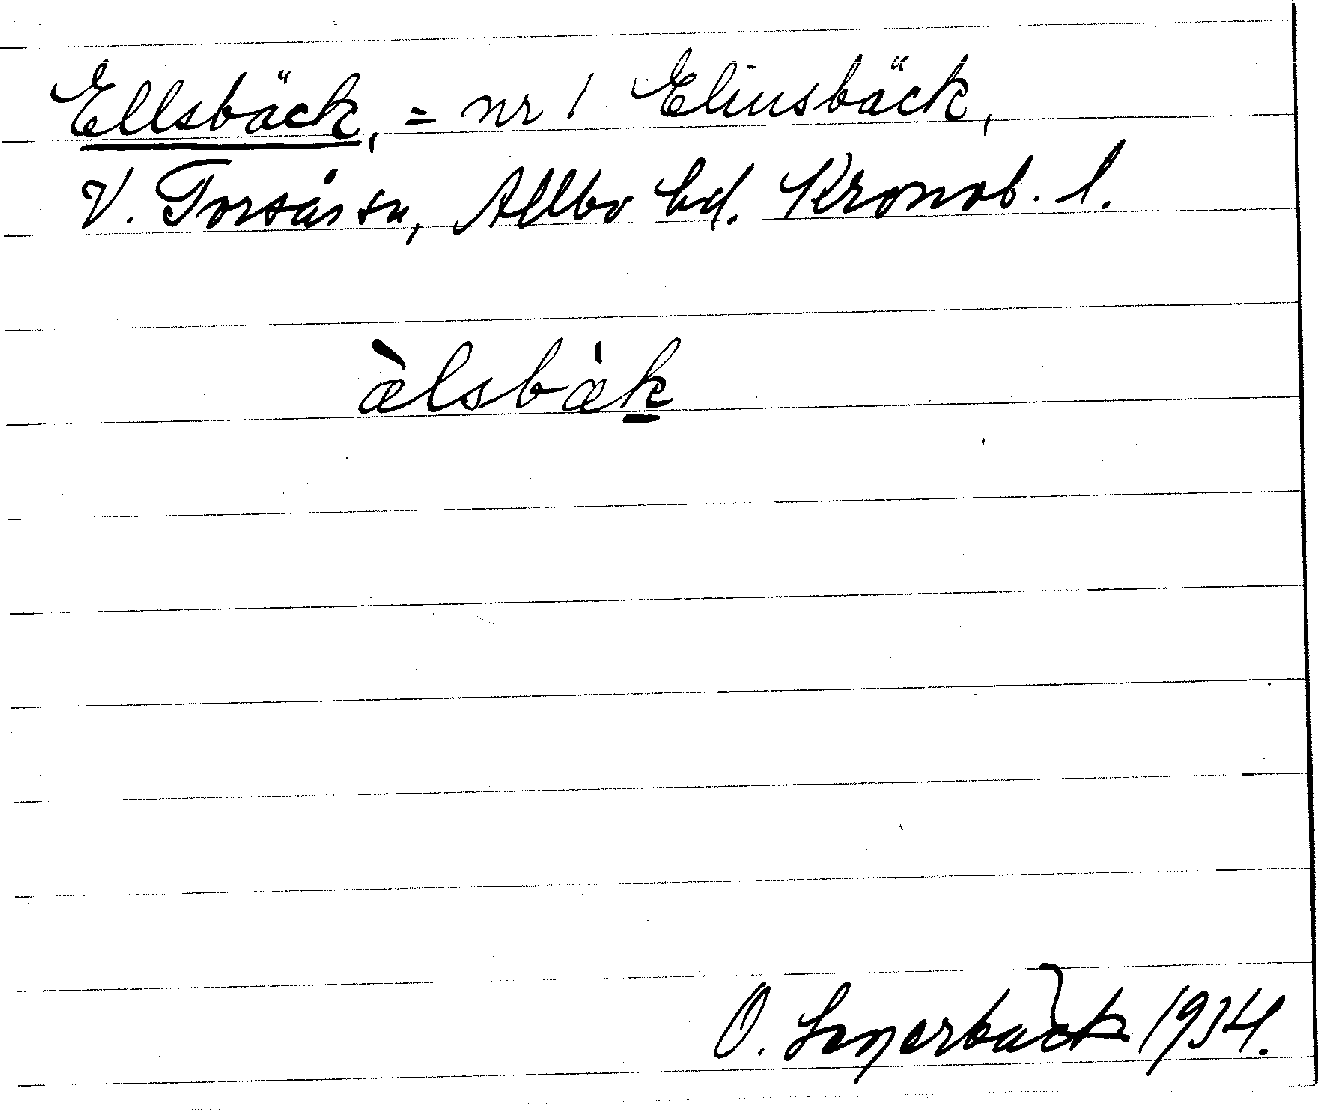 Ellsbäck, = nr 1 Elinsbäck,
V. Torsås sn, Allbo hd. Kronob. l.
æ̀lsbæ̀k
O. 1934.